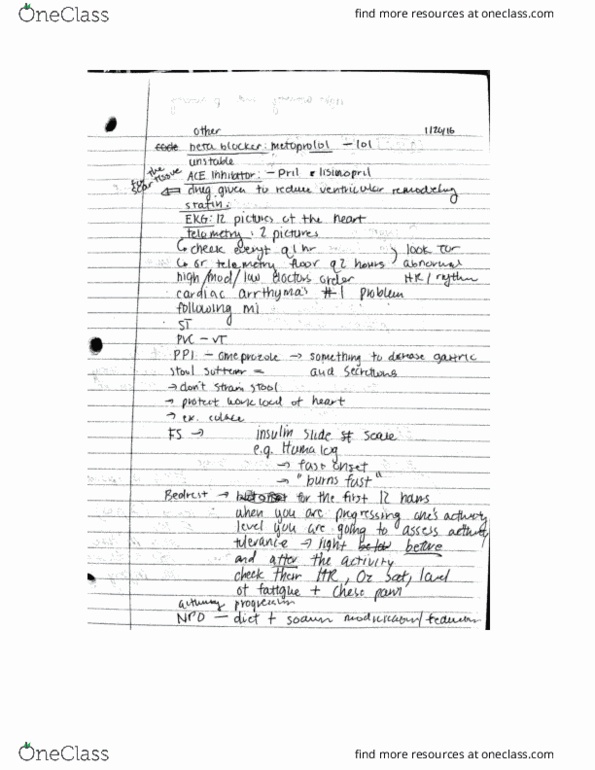 OneClass
find more resources at oneclass.com
other 1/26/16
beta blocker: metoprolol - lol
unstable
for the scar tissue
ACE Inhibitor: - pril lisinopril
drug given to reduce ventricular remodeling
statin:
EKG: 12 pictures of the heart
telemetry: 2 pictures
↳ check q 1 hr } look for
↳ or telemetry floor q2 hours abnormal
high/mod/low doctors order HR/
cardiac #1 problem
following MI
ST
PVC - VT
PPI - → something to gastric
= and secretions
→ don't strain stool
→ protect work load of heart
→ ex. colace
FS → insulin slide scale
e.g. Humalog
→ fast onset
→ "burns fast"
Bedrest → for the first 12 hours
when you are progressing one's activity
level you are going to assess activity
tolerance → right before
and after the activity
check their HR, O2 Sat, level
of + pain
NPO - diet +
OneClass
find more resources at oneclass.com